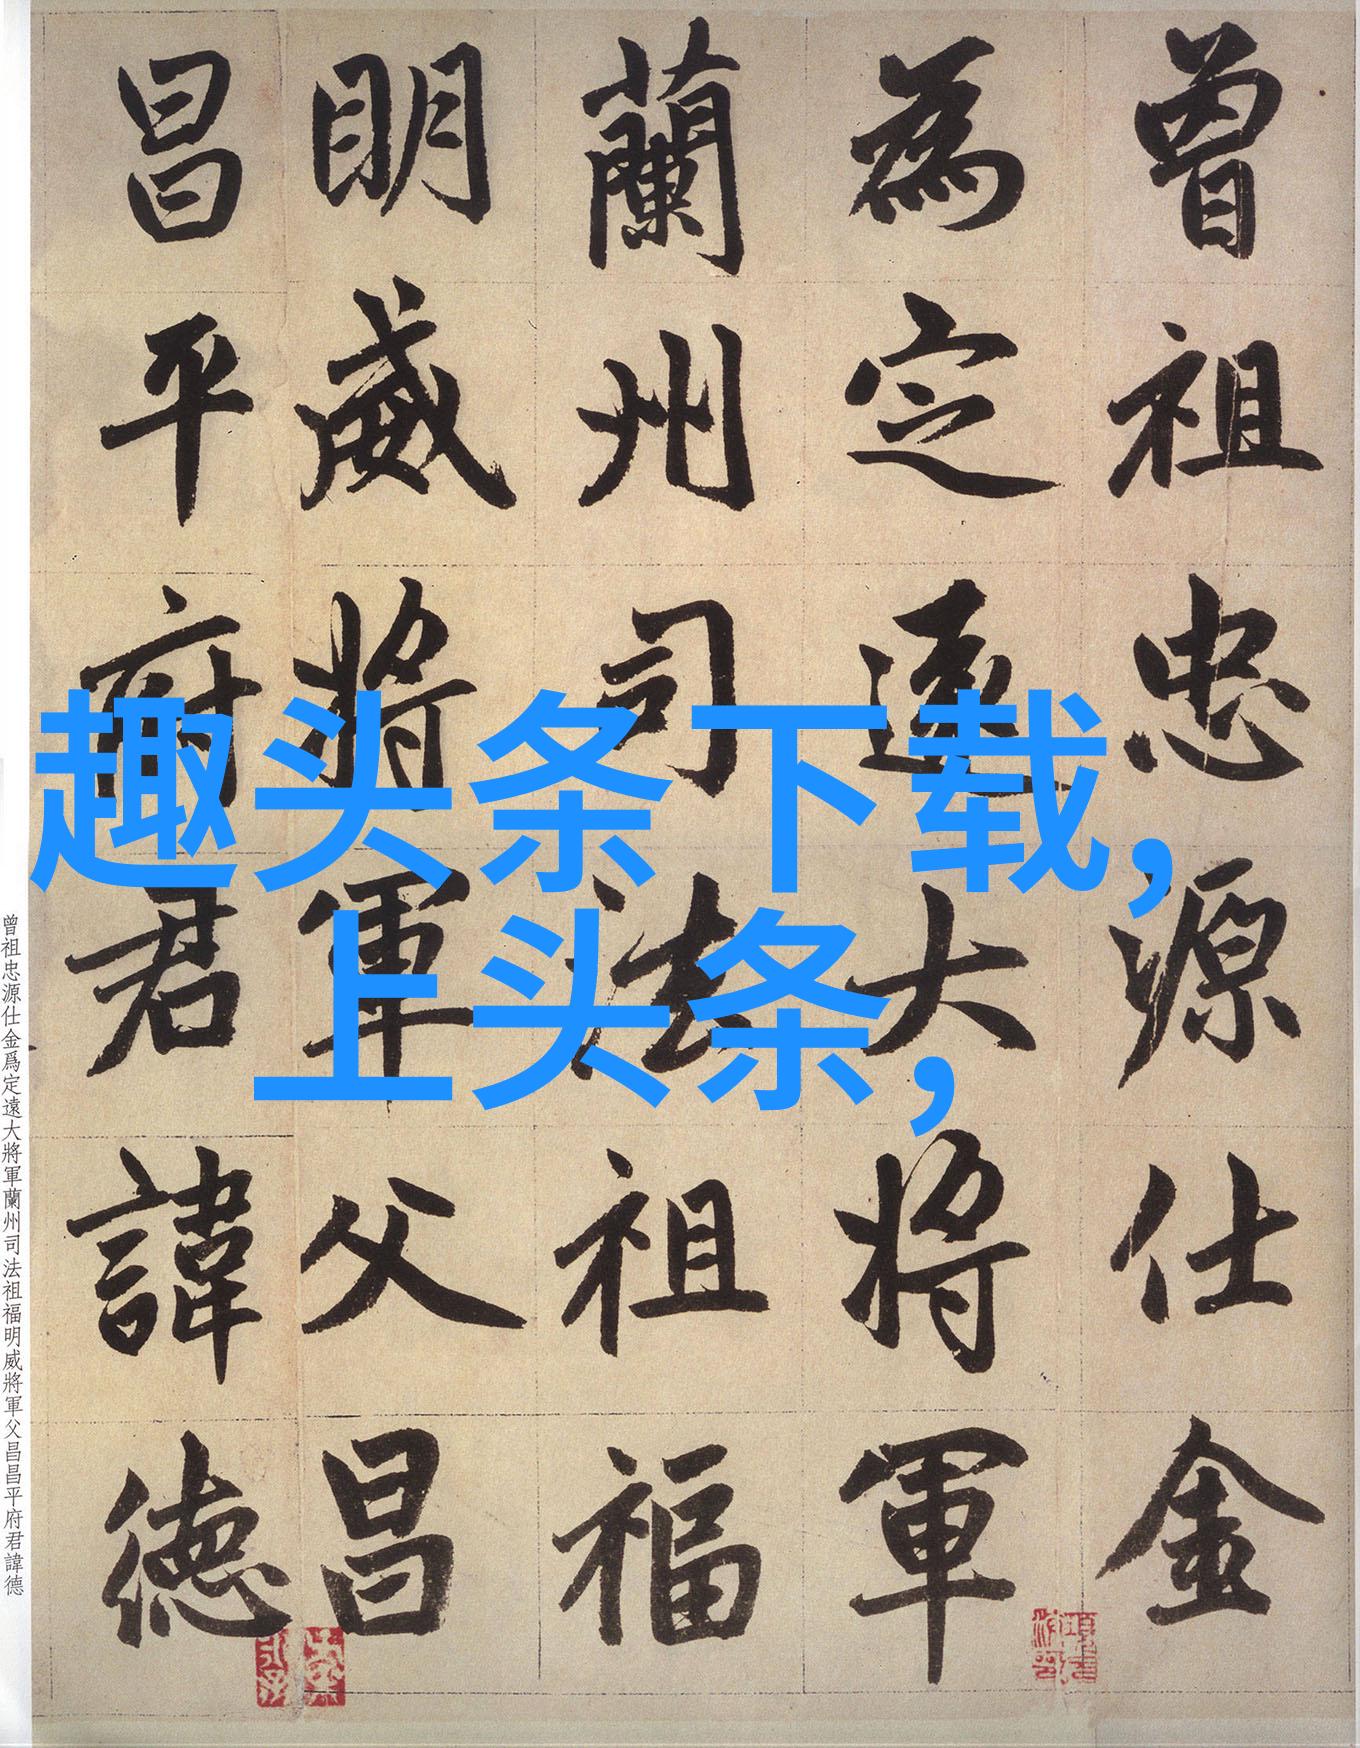 曾祖忠源仕金
為定遠大將軍
蘭州司法祖福
明威將軍父昌
昌平府君諱德
趣头条下载,
上头条,
曾祖忠源仕金爲定遠大將軍蘭州司法祖福明威將軍父昌昌平府君諱德